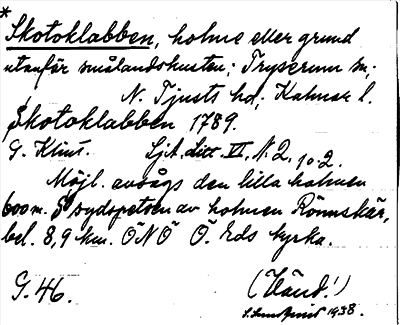 *
Skotoklabben, holme eller grund
utanför smålandskusten; Tryserum sn,
N. Tjusts hd, Kalmar l.
Skotoklabben 1789.
G. Klint. Sjöt. ditt. VI, N. 2, 10. 2.
Möjl. avsågs den lilla holmen
600 m. S sydspetsen av holmen Rönnskär,
bel. 8,9 km. ÖNÖ Ö. Eds kyrka.
G. 46. (Vänd!)
1938.